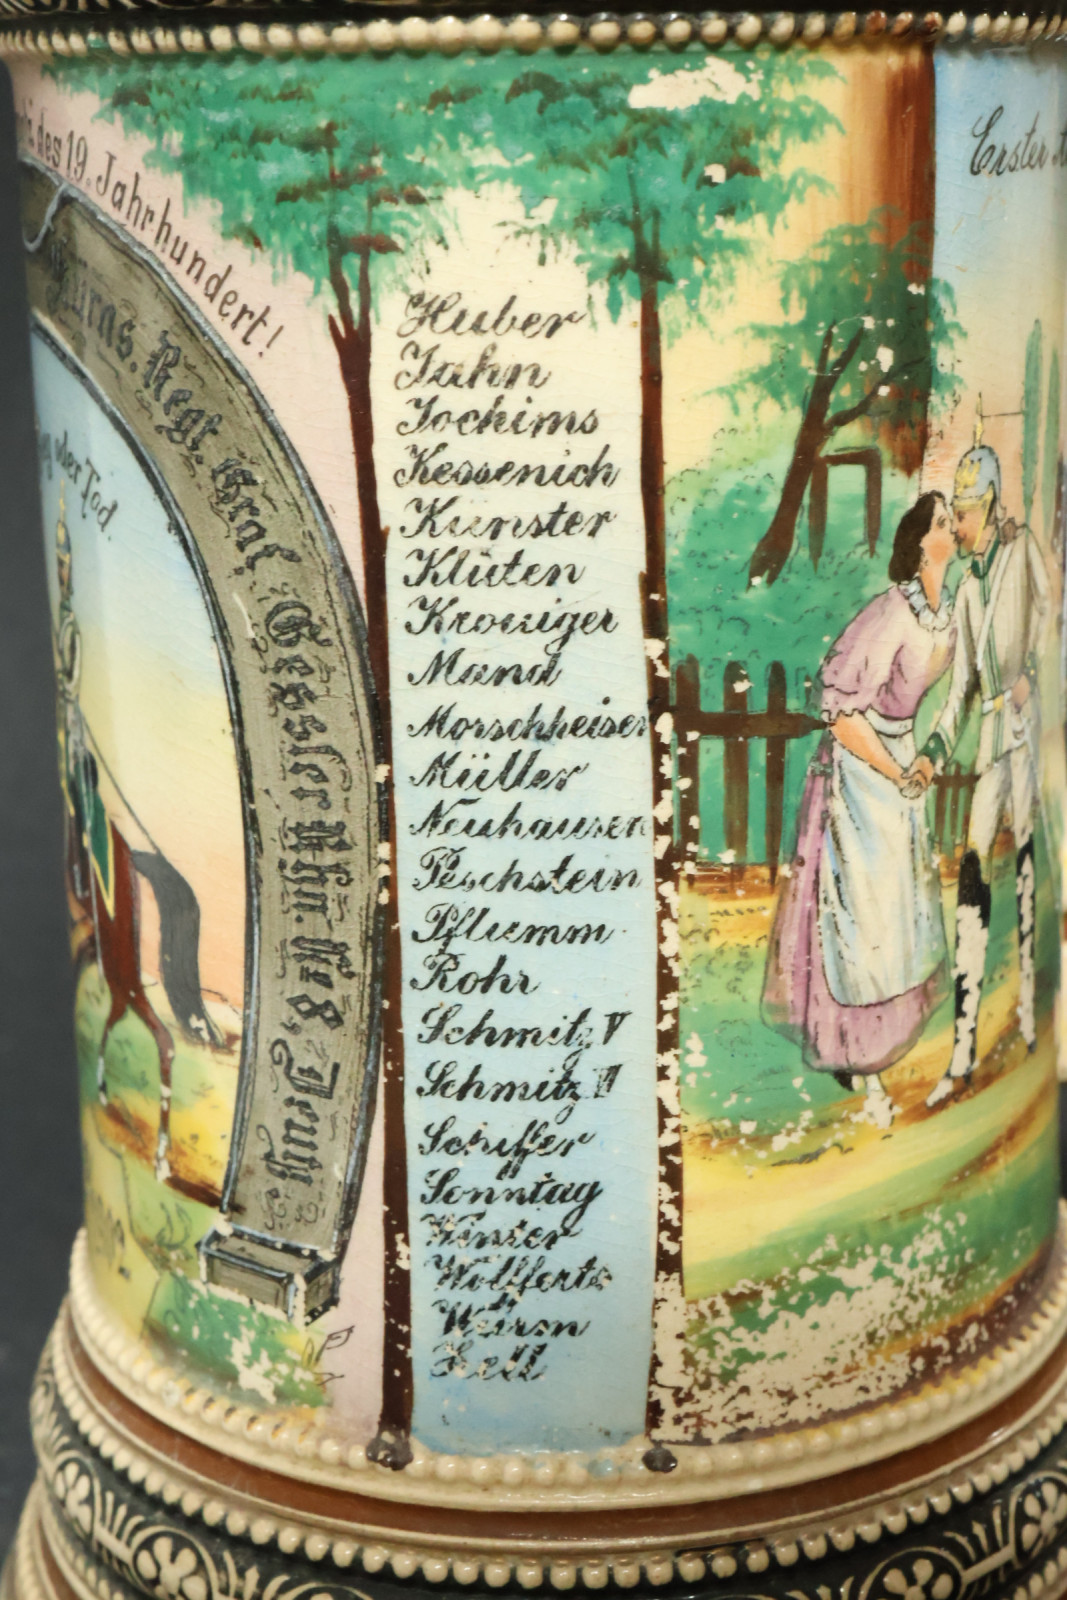 des 19. Jahrhundert!
Kürns. Regt. Graf Gessler Rhn. No 8, Deutz.
oder Tod.
Huber
Jahn
Jochims
Kessenich
Künster
Klüten
Krowiger
Mand
Morschheiser
Müller
Neuhausen
Peschstein
Pflumm
Rohr
Schmitz V
Schmitz VI
Schiffer
Sonntag
Winter
Wolfferts
Würm
Zell
Erster